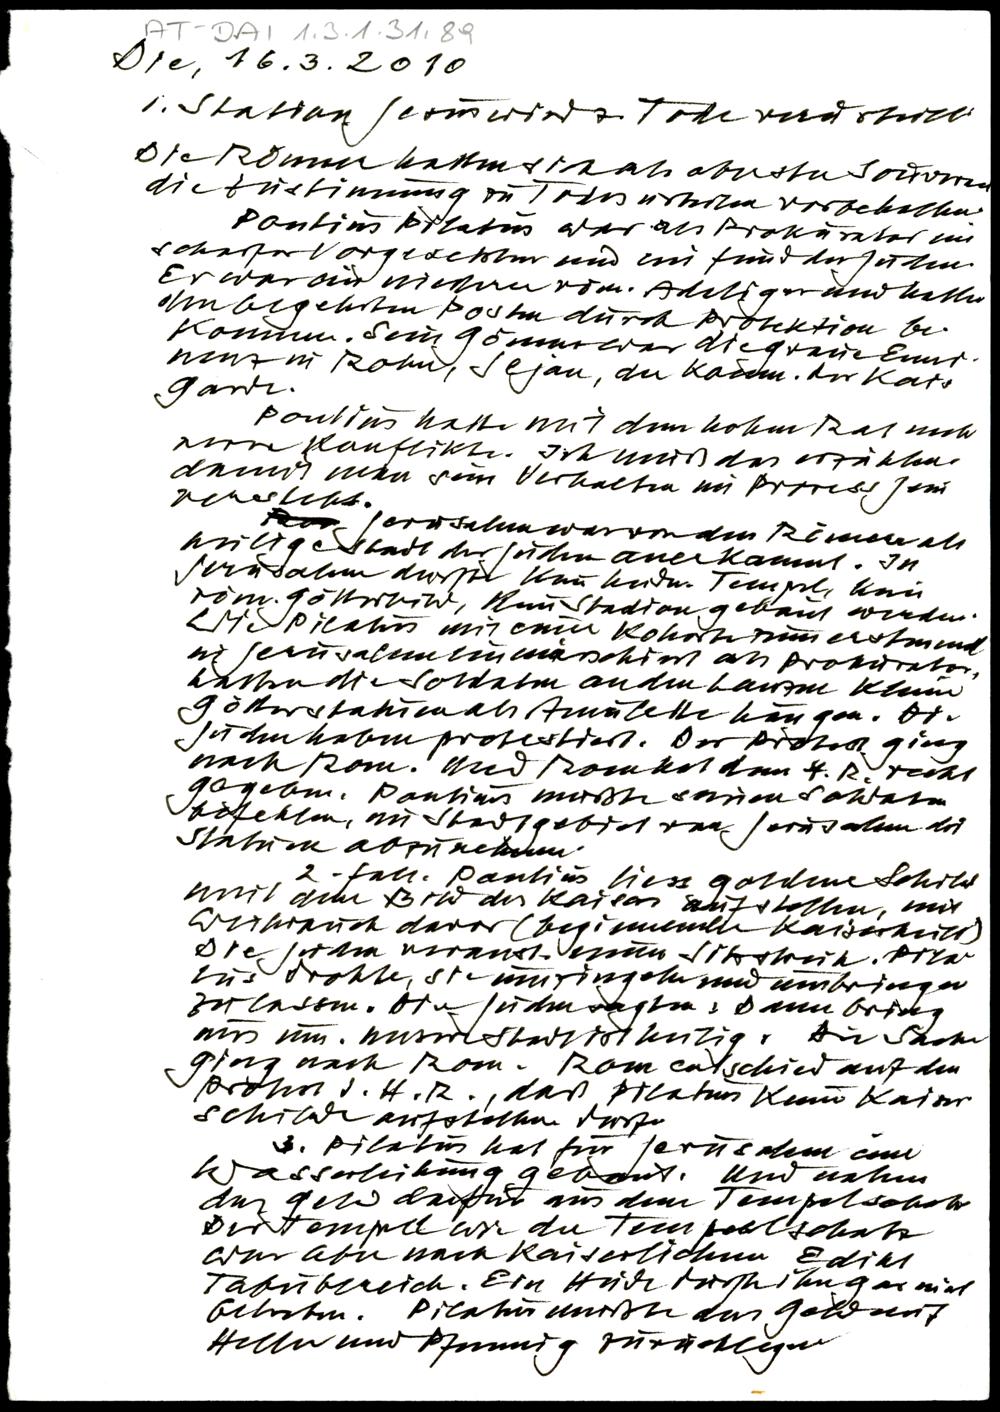 AT-DAI 1.3.1.31.89
Die, 16.3.2010
1. Station Jesus wird z. Tode verurteilt
Die Römer hatten sich als oberste Souverän
die Zustimmung zu Todesurteilen vorbehalten.
Pontius Pilatus war als Prokurator ein
scharfer Vorgesetzter und ein Feind der Juden.
Er war ein niederer röm. Adeliger und hatte
den begehrten Posten durch Protektion be-
kommen. Sein Gönner war die graue Emi-
nenz in Rom, Sejan, der Komm. der Kais
Garde.
Pontius hatte mit dem hohen Rat
Konflikte. Ich muß das erzählen
damit man sein Verhalten im Prozess Jesu
versteht.
Jerusalem war von den Römern als
heilige Stadt der Juden anerkannt. In
Jerusalem durfte kein heidn. Tempel, kein
röm. Götterbild, kein Stadion gebaut werden.
Wie Pilatus mit einer Kohorte zum erstenmal
in Jerusalem einmarschiert als Prokurator,
hatten die Soldaten an den Lanzen kleine
Götterstatuen als Amulette hängen. Die
Juden haben protestiert. Der Protest ging
nach Rom. Und Rom hat dem H. R. recht
gegeben. Pontius mußte seinen Soldaten
befehlen, im Stadtgebiet von Jerusalem die
Statuen abzunehmen.
2. Fall. Pontius liess goldene Schilde
mit dem Bild des Kaisers aufstellen, mit
Weihrauch davor (beginnender Kaiserkult)
Die Juden veranst. einen Sitzstreik. Pila-
tus drohte, sie umringeln und umbringen
zu lassen. Die Juden sagten: Dann bring
uns um. Unsere Stadt ist heilig. Die Sache
ging nach Rom. Rom entschied auf den
Protest d. H. R., daß Pilatus keine Kaiser
schilde aufstellen durfte
3. Pilatus hat für Jerusalem eine
Wasserleitung gebaut. Und nahm
das Geld dafür aus dem Tempelschatz
Der Tempel wie der Tempelschatz
war aber nach kaiserlichem Edikt
Tabubereich. Ein Heide durfte ihn gar nicht
betreten. Pilatus mußte das Geld auf
Heller und Pfennig zurücklegen